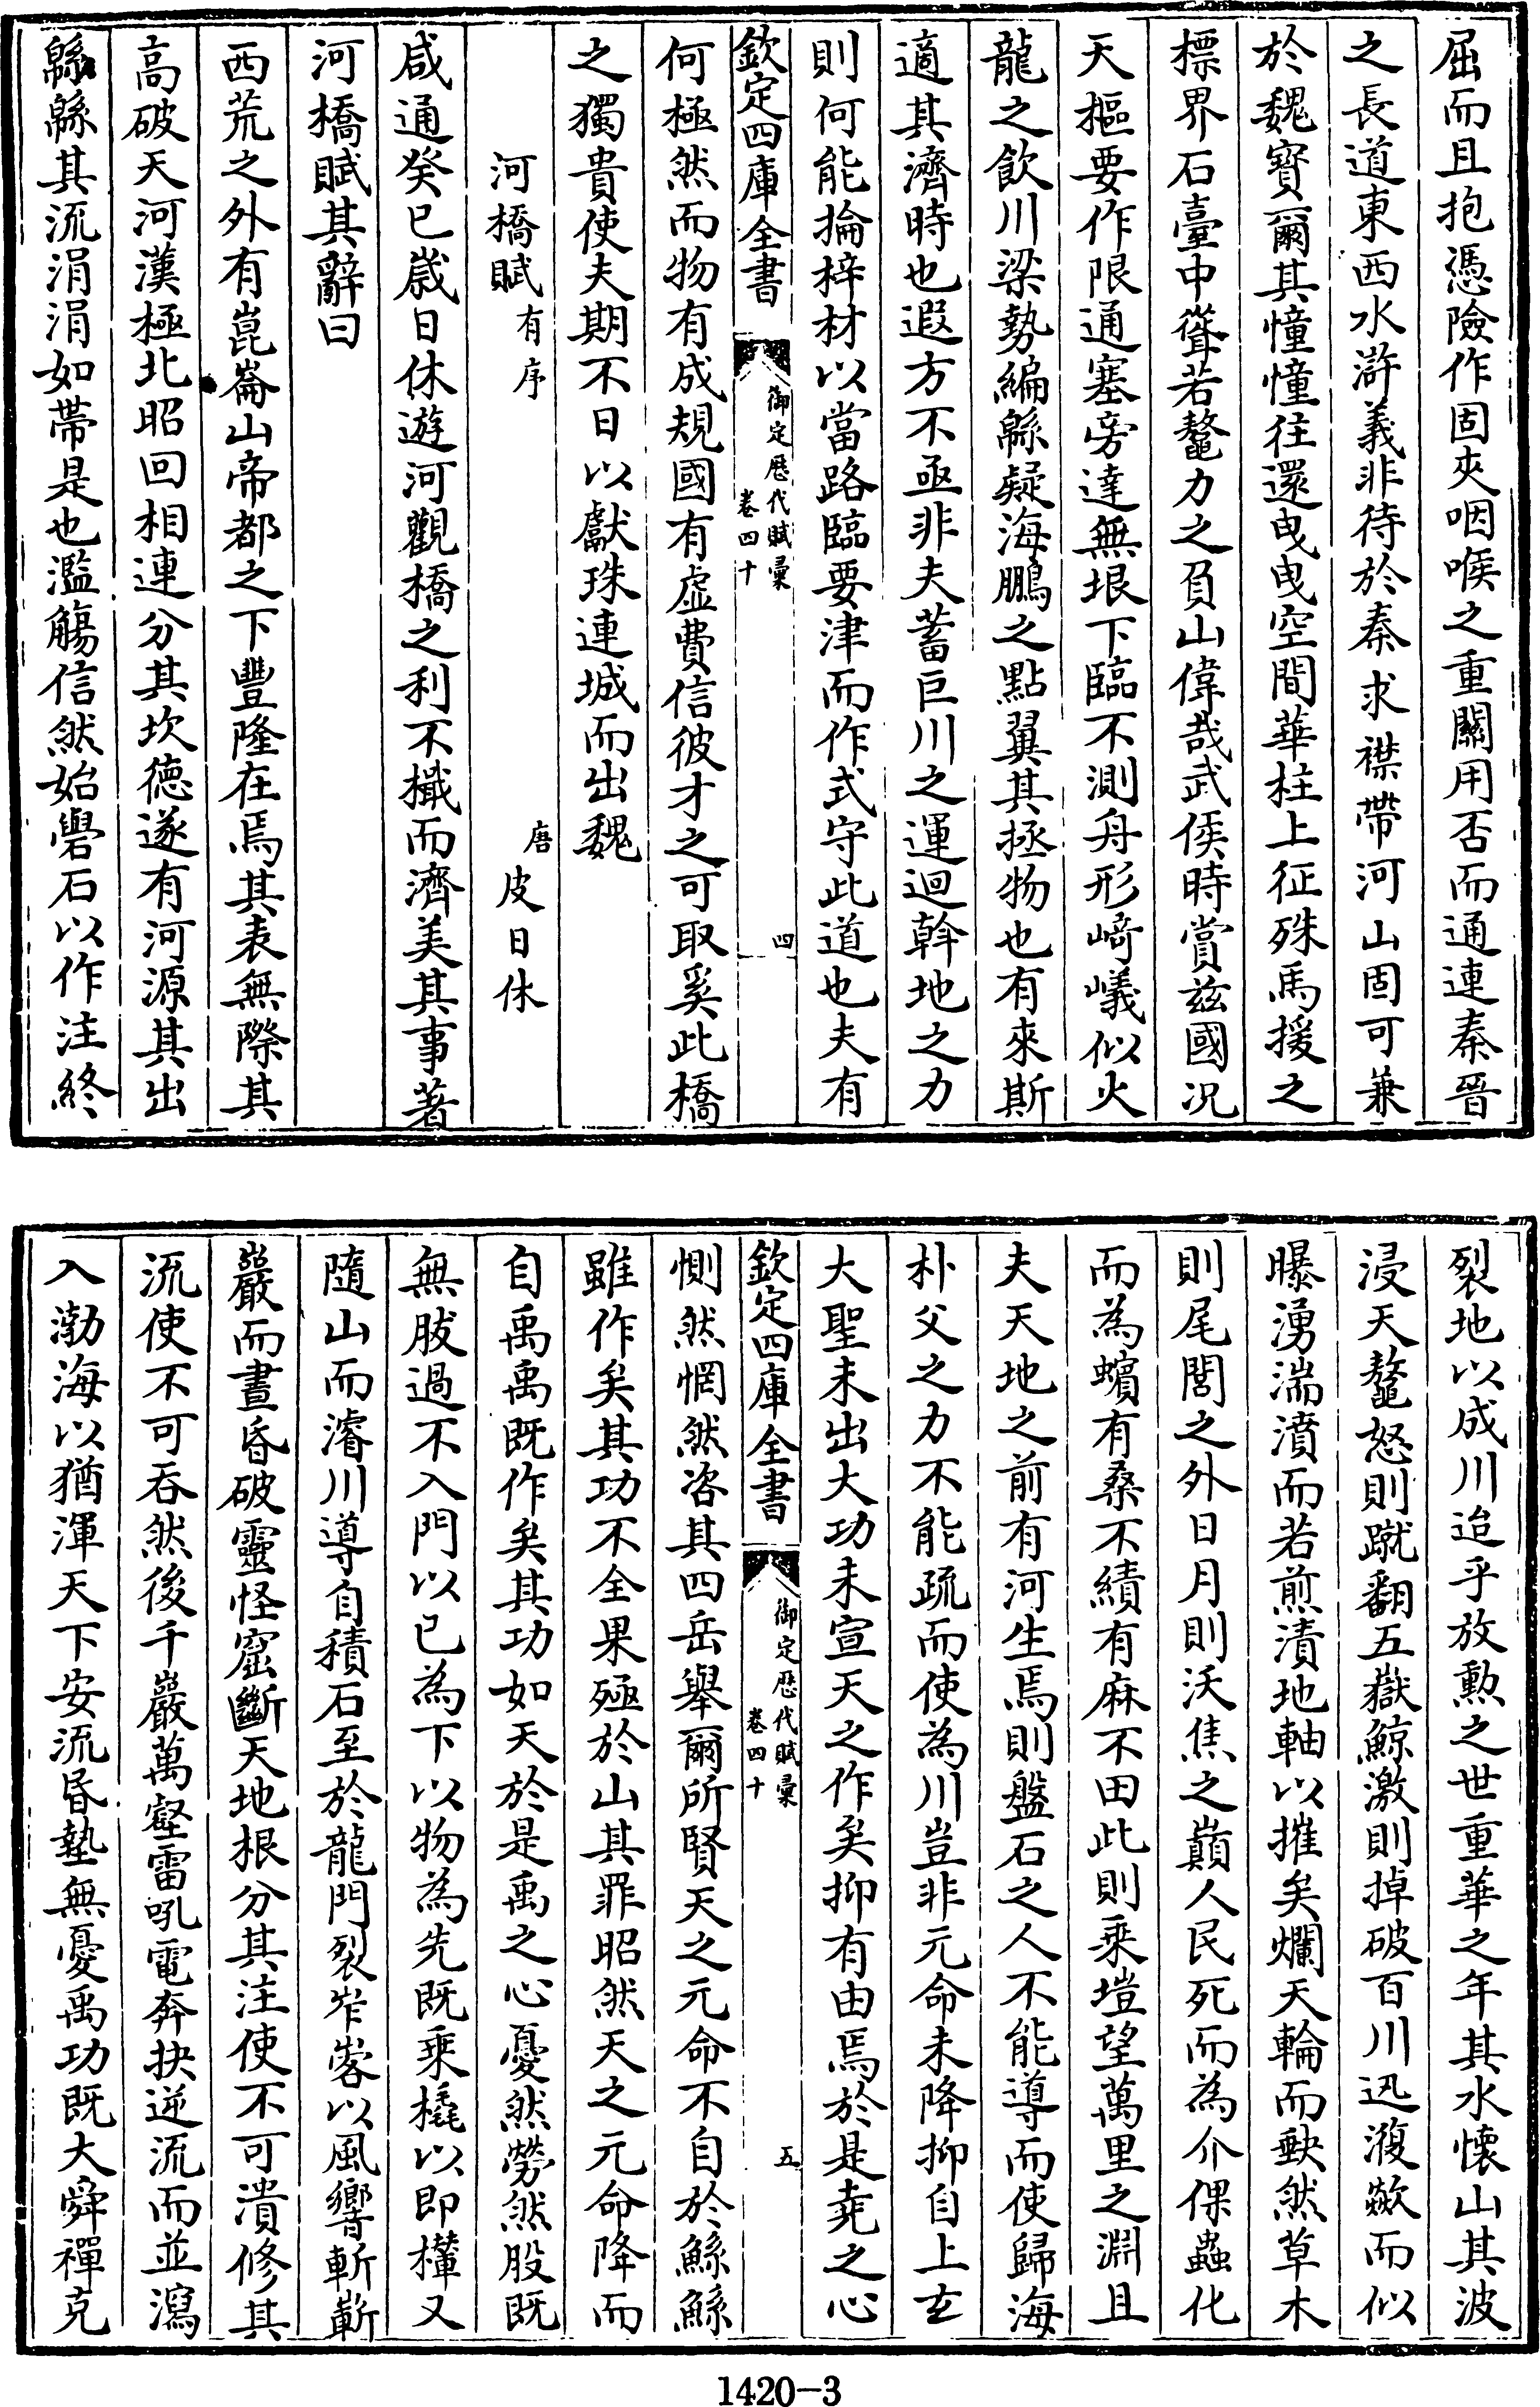 屈而且抱憑險作固夾咽喉之重關用否而通連秦晉
之長道東西水滸義非待於秦求襟帶河山固可兼
於魏寶爾其憧憧往還曳曳空間華柱上征殊馬援之
標界石臺中聳若鼇力之負山偉哉武侯時賞兹國况
天樞要作限通塞旁達無垠下臨不測舟形﨑嶬似火
龍之飲川梁勢編緜疑海鵬之點翼其拯物也有來斯
適其濟時也遐方不亟非夫蓄巨川之運迴斡地之力
則何能掄梓材以當路臨要津而作式守此道也夫有
欽定四庫全書 御定歷代賦彙 卷四十 四
何極然而物有成規國有虚費信彼才之可取奚此橋
之獨貴使夫期不日以獻珠連城而出魏
河橋賦有序 唐 皮日休
咸通癸巳歲日休遊河觀橋之利不檝而濟美其事著
河橋賦其辭曰
西荒之外有崑崙山帝都之下豐隆在焉其表無際其
高破天河漢極北昭回相連分其坎德遂有河源其出
緜緜其流涓涓如帶是也濫觴信然始礐石以作注終
裂地以成川迨乎放勲之世重華之年其水懷山其波
浸天鼇怒則蹴翻五嶽鯨激則掉破百川迅澓歘而似
曝湧湍濆而若煎漬地軸以摧矣爛天輪而缺然草木
則尾閭之外日月則沃焦之巔人民死而為介倮蟲化
而為蠙有桑不績有麻不田此則乗塏望萬里之淵且
夫天地之前有河生焉則盤石之人不能導而使歸海
朴父之力不能疏而使為川豈非元命未降抑自上玄
大聖未出大功未宣天之作矣抑有由焉於是堯之心
欽定四庫全書 御定歷代賦彙 卷四十 五
惻然惘然咨其四岳舉爾所賢天之元命不自於鯀鯀
雖作矣其功不全果殛於山其罪昭然天之元命降而
自禹禹既作矣其功如天於是禹之心憂然勞然股既
無胈過不入門以己為下以物為先既乗橇以即檋又
隨山而濬川導自積石至於龍門裂岝峉以風響斬嶄
巖而晝昏破靈怪窟斷天地根分其注使不可潰修其
流使不可吞然後千巖萬壑雷吼電奔抉逆流而並瀉
入渤海以猶渾天下安流昏墊無憂禹功既大舜禪克
1420-3